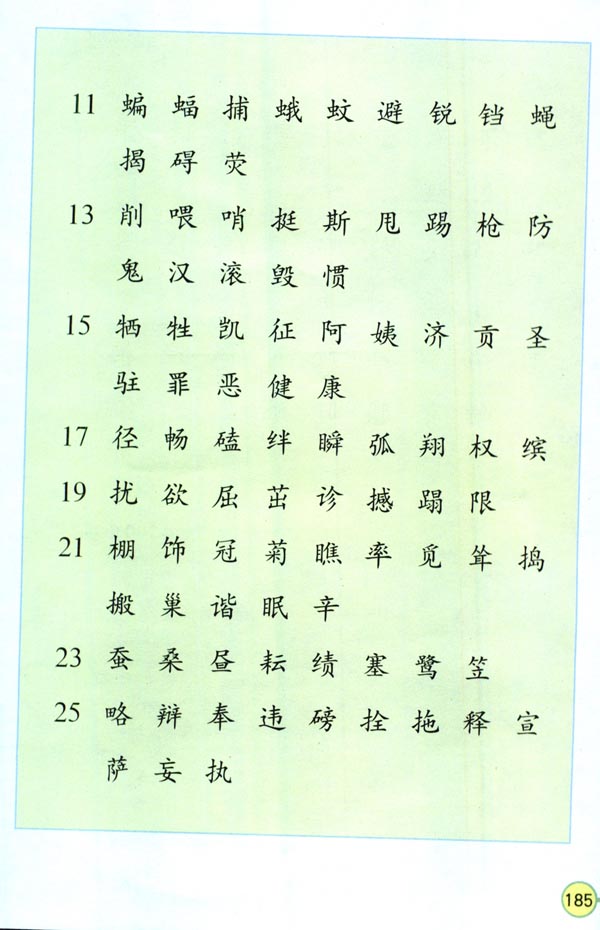 11 蝙 蝠 捕 蛾 蚊 避 锐 铛 蝇
揭 碍 荧
13 削 喂 哨 挺 斯 甩 踢 枪 防
鬼 汉 滚 毁 惯
15 牺 牲 凯 征 阿 姨 济 贡 圣
驻 罪 恶 健 康
17 径 畅 磕 绊 瞬 弧 翔 权 缤
19 扰 欲 屈 茁 诊 撼 蹋 限
21 棚 饰 冠 菊 瞧 率 觅 耸 捣
搬 巢 谐 眠 辛
23 蚕 桑 昼 耘 绩 塞 鹭 笠
25 略 辩 奉 违 磅 拴 拖 释 宣
萨 妄 执
185